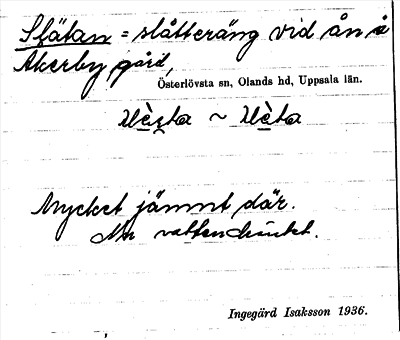 Slätan = slåtteräng vid ån å
Åkerby gård,
Österlövsta sn, Olands hd, Uppsala län.
Mycket jämnt där.
Nu vattendränkt.
Ingegärd Isaksson 1936.